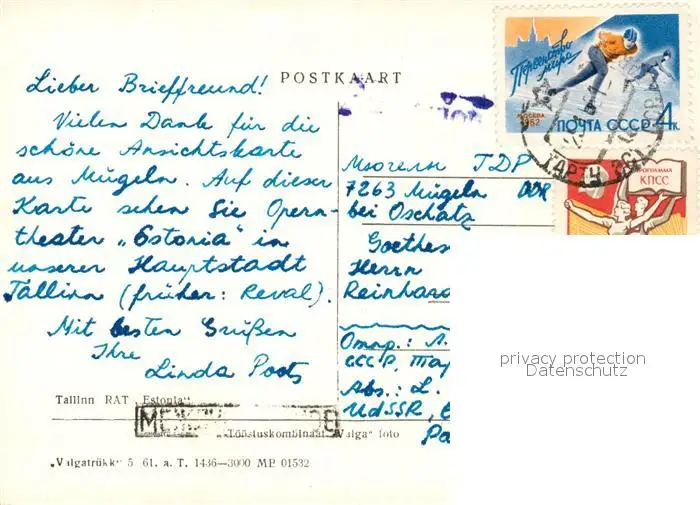 POSTKAART
Lieber Brieffreund!
Vielen Dank für die
schöne Ansichtskarte
aus Mügeln. Auf dieser
Karte sehen Sie Opern-
theater „Estonia" in
unserer Hauptstadt
Tallinn (früher: Reval).
Mit besten Grüßen
Ihre
Linda Poots
Tallinn RAT „Estonia"
Tööstuskombinaat „Valga" foto
„Valgatrükk" 5 61. a. T. 1436—3000 MP 01532
Первенство
мира
МОСКВА
1962
ПОЧТА СССР 4к.
ТАРТУ
ПРОГРАММА
КПСС
Мюгельн ГДР
7263 Mügeln DDR
bei Oschatz
Goethes
Herrn
Reinhard
Отпр.: Л.
СССР, Тар
Abs.: L.
UdSSR,
privacy protection
Datenschutz